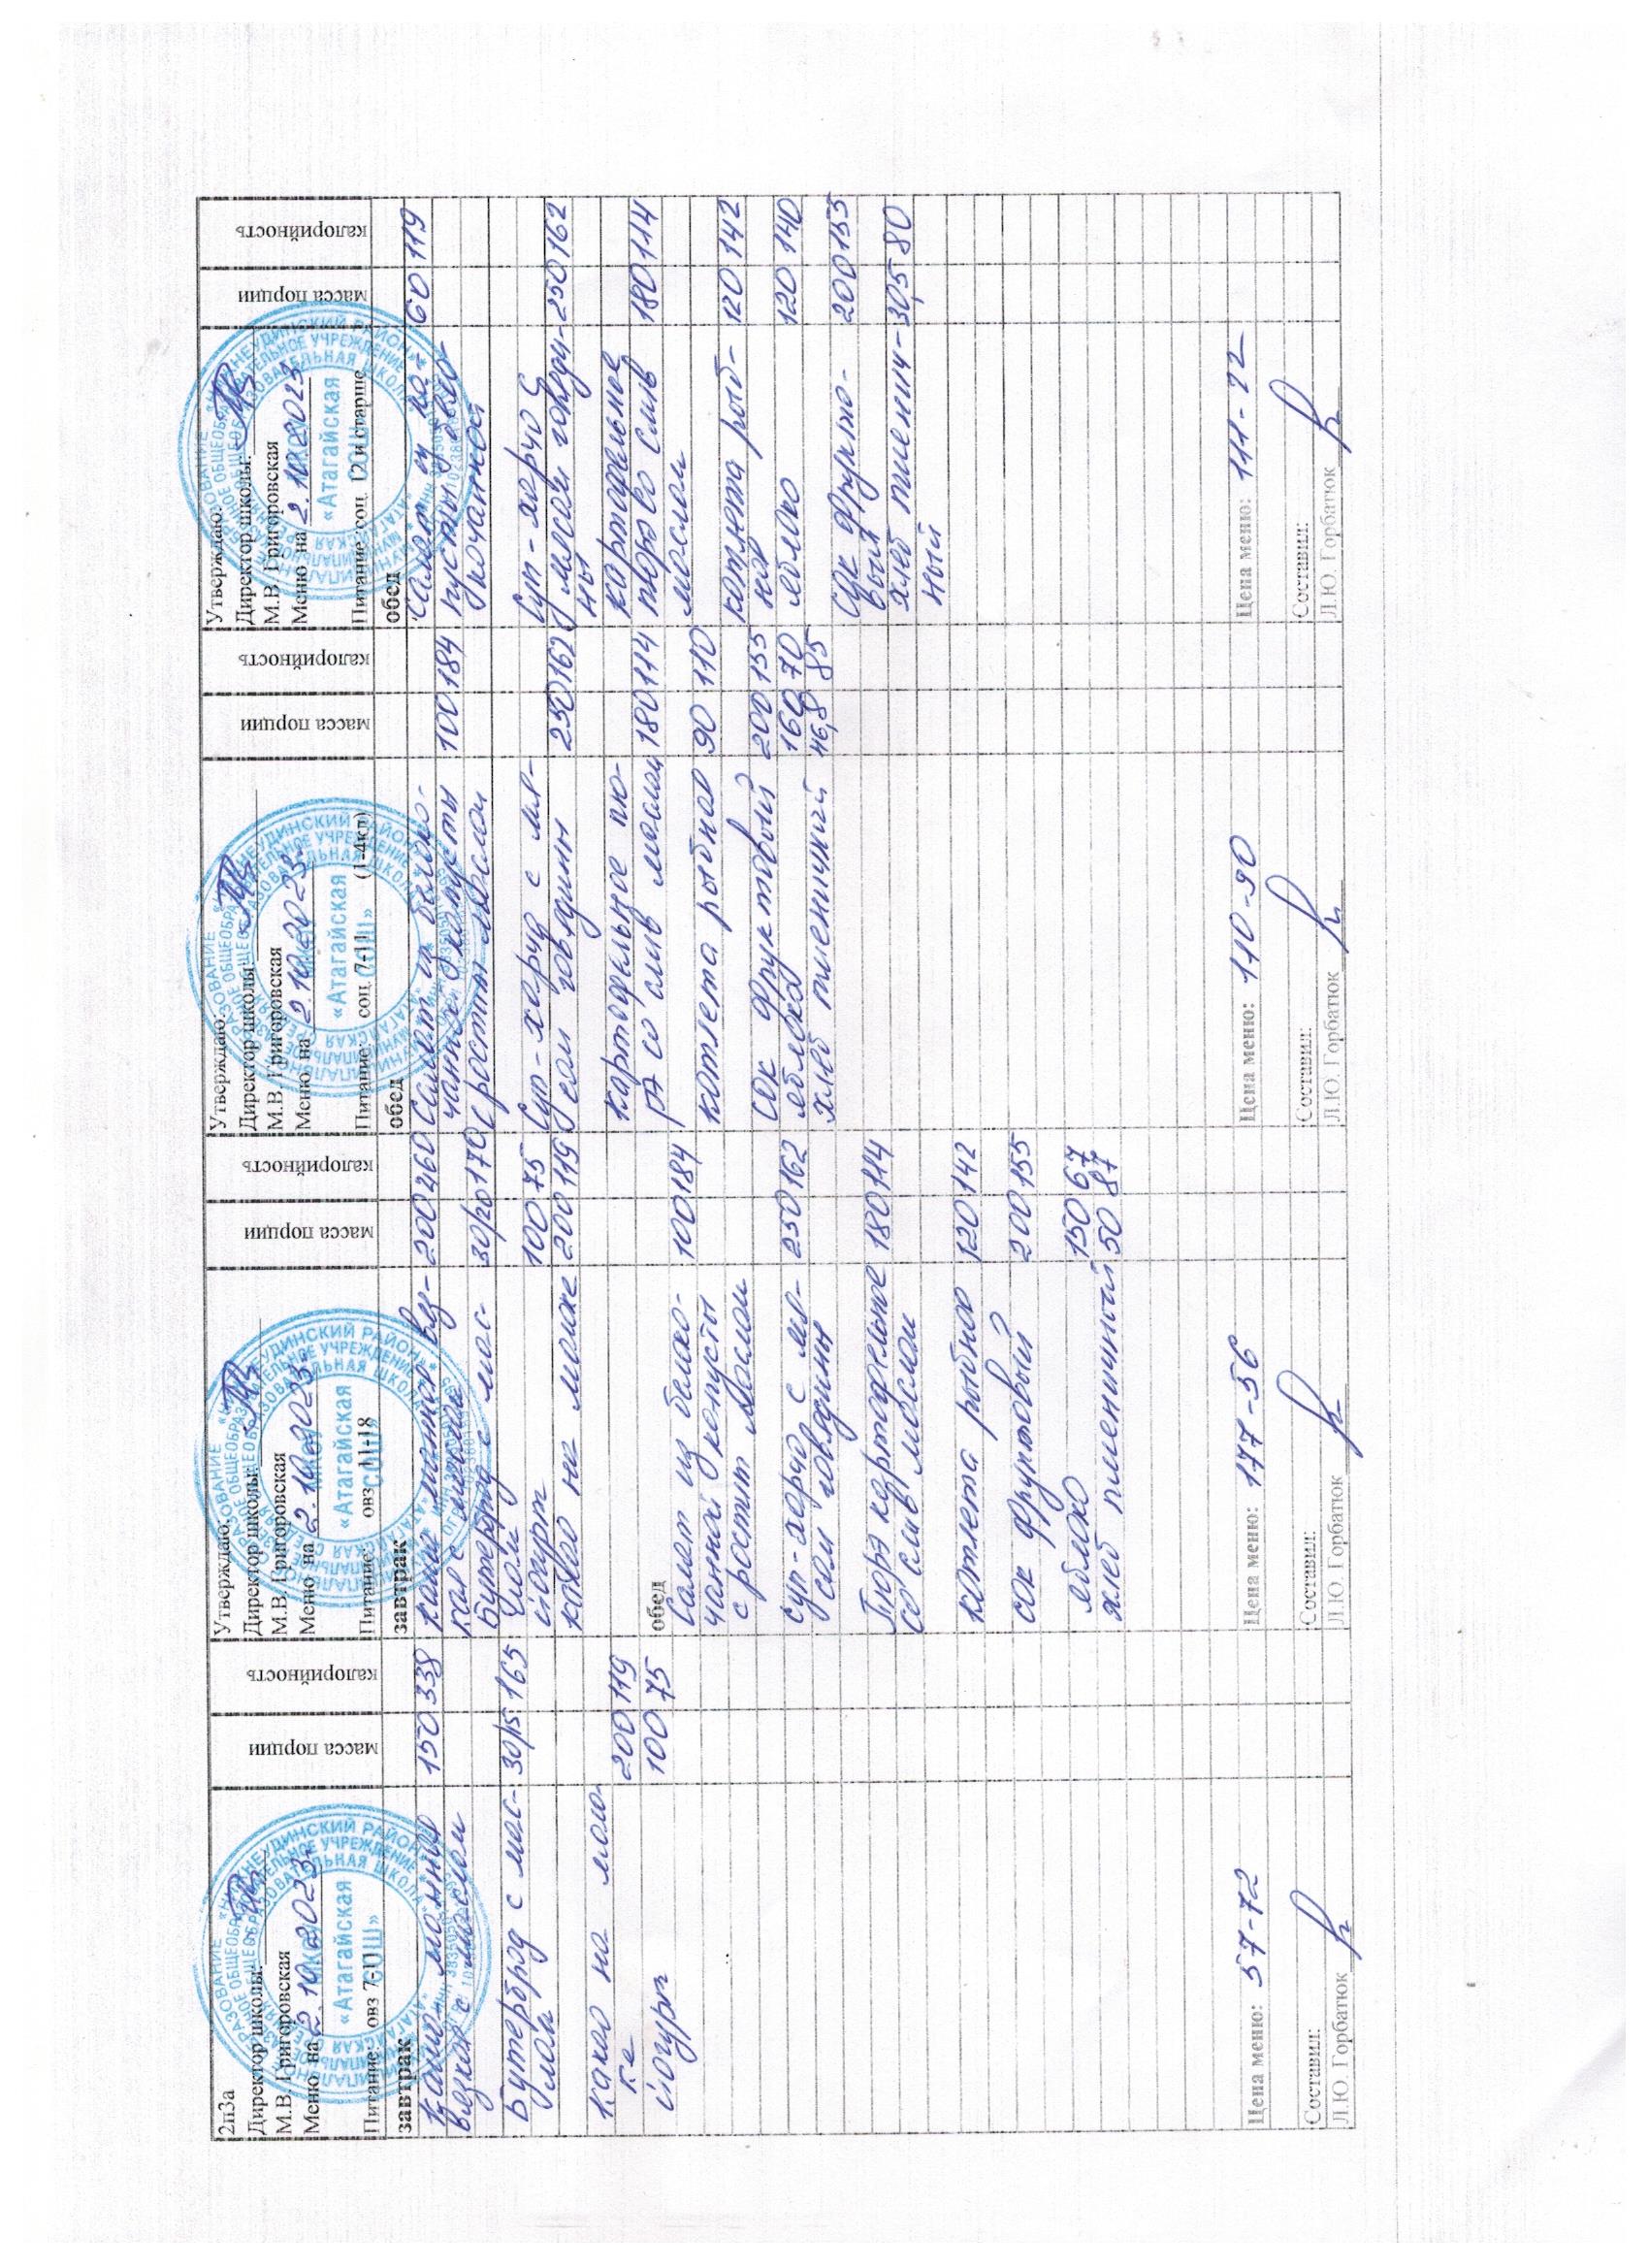 2п3а
Директор школы:
М.В. Григоровская
Меню на 2.10.2023
Питание: овз 7-11
масса порции
калорийность
завтрак
Каша манная 150 338
вязкая с маслом
Бутерброд с мас- 30/15 165
лом
какао на моло-
ке 200 119
йогурт 100 75
Цена меню: 57-72
Составил:
Л.Ю. Горбатюк
Утверждаю:
Директор школы:
М.В. Григоровская
Меню на 2.10.2023
Питание: овз 11-18
масса порции
калорийность
завтрак
каша манная вяз- 200 460
кая с маслом
Бутерброд с мас- 30/20 170
лом
йогурт 100 75
какао на молоке 200 119
обед
Салат из белоко- 100 184
чанной капусты
с растит маслом
Суп-харчо с мя- 250 162
сом говядины
Пюрэ картофельное 180 114
со слив маслом
котлета рыбная 120 142
сок фруктовый 200 155
яблоко 150 67
хлеб пшеничный 50 87
Цена меню: 177-56
Составил:
Л.Ю. Горбатюк
Утверждаю:
Директор школы:
М.В. Григоровская
Меню на 2.10.2023
Питание: соц. 7-11 (1-4кл)
масса порции
калорийность
обед
Салат из белоко-
чанной капусты 100 184
с растит маслом
Суп-харчо с мя-
сом говядины 250 162
Картофельное пю-
рэ со слив маслом 180 114
котлета рыбная 90 110
Сок фруктовый 200 155
яблоко 160 70
хлеб пшеничный 46,8 85
Цена меню: 110-90
Составил:
Л.Ю. Горбатюк
Утверждаю:
Директор школы:
М.В. Григоровская
Меню на 2.10.2023
Питание: соц. 12 и старше
масса порции
калорийность
обед
Салат из ка- 60 119
пусты бело-
кочанной
Суп-харчо с
мясом говяди- 250 162
ны
картофельное
пюрэ со слив 180 114
маслом
котлета рыб- 120 142
ная
яблоко 120 140
Сок фрукто- 200 155
вый
хлеб пшенич- 30,5 80
ный
Цена меню: 111-22
Составил:
Л.Ю. Горбатюк
«Атагайская
СОШ»